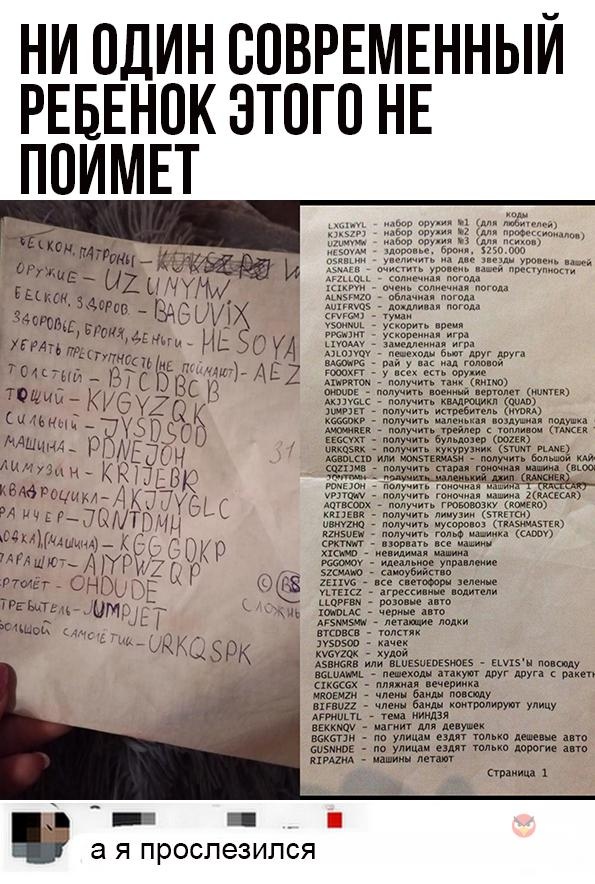 НИ ОДИН СОВРЕМЕННЫЙ
РЕБЕНОК ЭТОГО НЕ
ПОЙМЕТ
БЕСКОН. ПАТРОНЫ –
ОРУЖИЕ – UZUMYMW
БЕСКОН, ЗДОРОВ. – BAGUVIX
ЗДОРОВЬЕ, БРОНЯ, ДЕНЬГИ – HESOYA
УБРАТЬ ПРЕСТУПНОСТЬ (НЕ ПОЙМАЮТ) – AEZ
ТОЛСТЫЙ – BTCDBCB
ТОЩИЙ – KVGYZQK
СИЛЬНЫЙ – JYSDSOD
МАШИНА – PDNEJOH
ЛИМУЗИН – KRIJEBR
КВАДРОЦИКЛ – AKJJYGLC
РАНЧЕР – JQNTDMH
ОДКА)(МАШИНА) – KGGGDKP
АРАШЮТ – AIYPWZQP
РТОЛЁТ – OHDUDE
ТРЕБИТЕЛЬ – JUMPJET
БОЛЬШОЙ САМОЛЁТИК – URKQSPK
31
СЛОЖНЬ
коды
LXGIWYL - набор оружия №1 (для любителей)
KJKSZPJ - набор оружия №2 (для профессионалов)
UZUMYMW - набор оружия №3 (для психов)
HESOYAM - здоровье, броня, $250.000
OSRBLHH - увеличить на две звезды уровень вашей
ASNAEB - очистить уровень вашей преступности
AFZLLQLL - солнечная погода
ICIKPYH - очень солнечная погода
ALNSFMZO - облачная погода
AUIFRVQS - дождливая погода
CFVFGMJ - туман
YSOHNUL - ускорить время
PPGWJHT - ускоренная игра
LIYOAAY - замедленная игра
AJLOJYQY - пешеходы бьют друг друга
BAGOWPG - рай у вас над головой
FOOOXFT - у всех есть оружие
AIWPRTON - получить танк (RHINO)
OHDUDE - получить военный вертолет (HUNTER)
AKJJYGLC - получить КВАДРОЦИКЛ (QUAD)
JUMPJET - получить истребитель (HYDRA)
KGGGDKP - получить маленькая воздушная подушка
AMOMHRER - получить трейлер с топливом (TANCER
EEGCYXT - получить бульдозер (DOZER)
URKQSRK - получить кукурузник (STUNT PLANE)
AGBDLCID ИЛИ MONSTERMASH - получить большой КАЙ
CQZIJMB - получить старая гоночная машина (BLOO
JQNTDMH - получить маленький джип (RANCHER)
PDNEJOH - получить гоночная машина 1 (RACECAR)
VPJTQWV - получить гоночная машина 2(RACECAR)
AQTBCODX - получить ГРОБОВОЗКУ (ROMERO)
KRIJEBR - получить лимузин (STRETCH)
UBHYZHQ - получить мусоровоз (TRASHMASTER)
RZHSUEW - получить гольф машинка (CADDY)
CPKTNWT - взорвать все машины
XICWMD - невидимая машина
PGGOMOY - идеальное управление
SZCMAWO - самоубийство
ZEIIVG - все светофоры зеленые
YLTEICZ - агрессивные водители
LLQPFBN - розовые авто
IOWDLAC - черные авто
AFSNMSMW - летающие лодки
BTCDBCB - толстяк
JYSDSOD - качек
KVGYZQK - худой
ASBHGRB или BLUESUEDESHOES - ELVIS'Ы повсюду
BGLUAWML - пешеходы атакуют друг друга с ракетн
CIKGCGX - пляжная вечеринка
MROEMZH - члены банды повсюду
BIFBUZZ - члены банды контролируют улицу
AFPHULTL - тема НИНДЗЯ
BEKKNQV - магнит для девушек
BGKGTJH - по улицам ездят только дешевые авто
GUSNHDE - по улицам ездят только дорогие авто
RIPAZHA - машины летают
Страница 1
а я прослезился